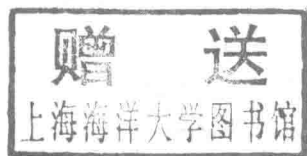 赠 送
上海海洋大学图书馆